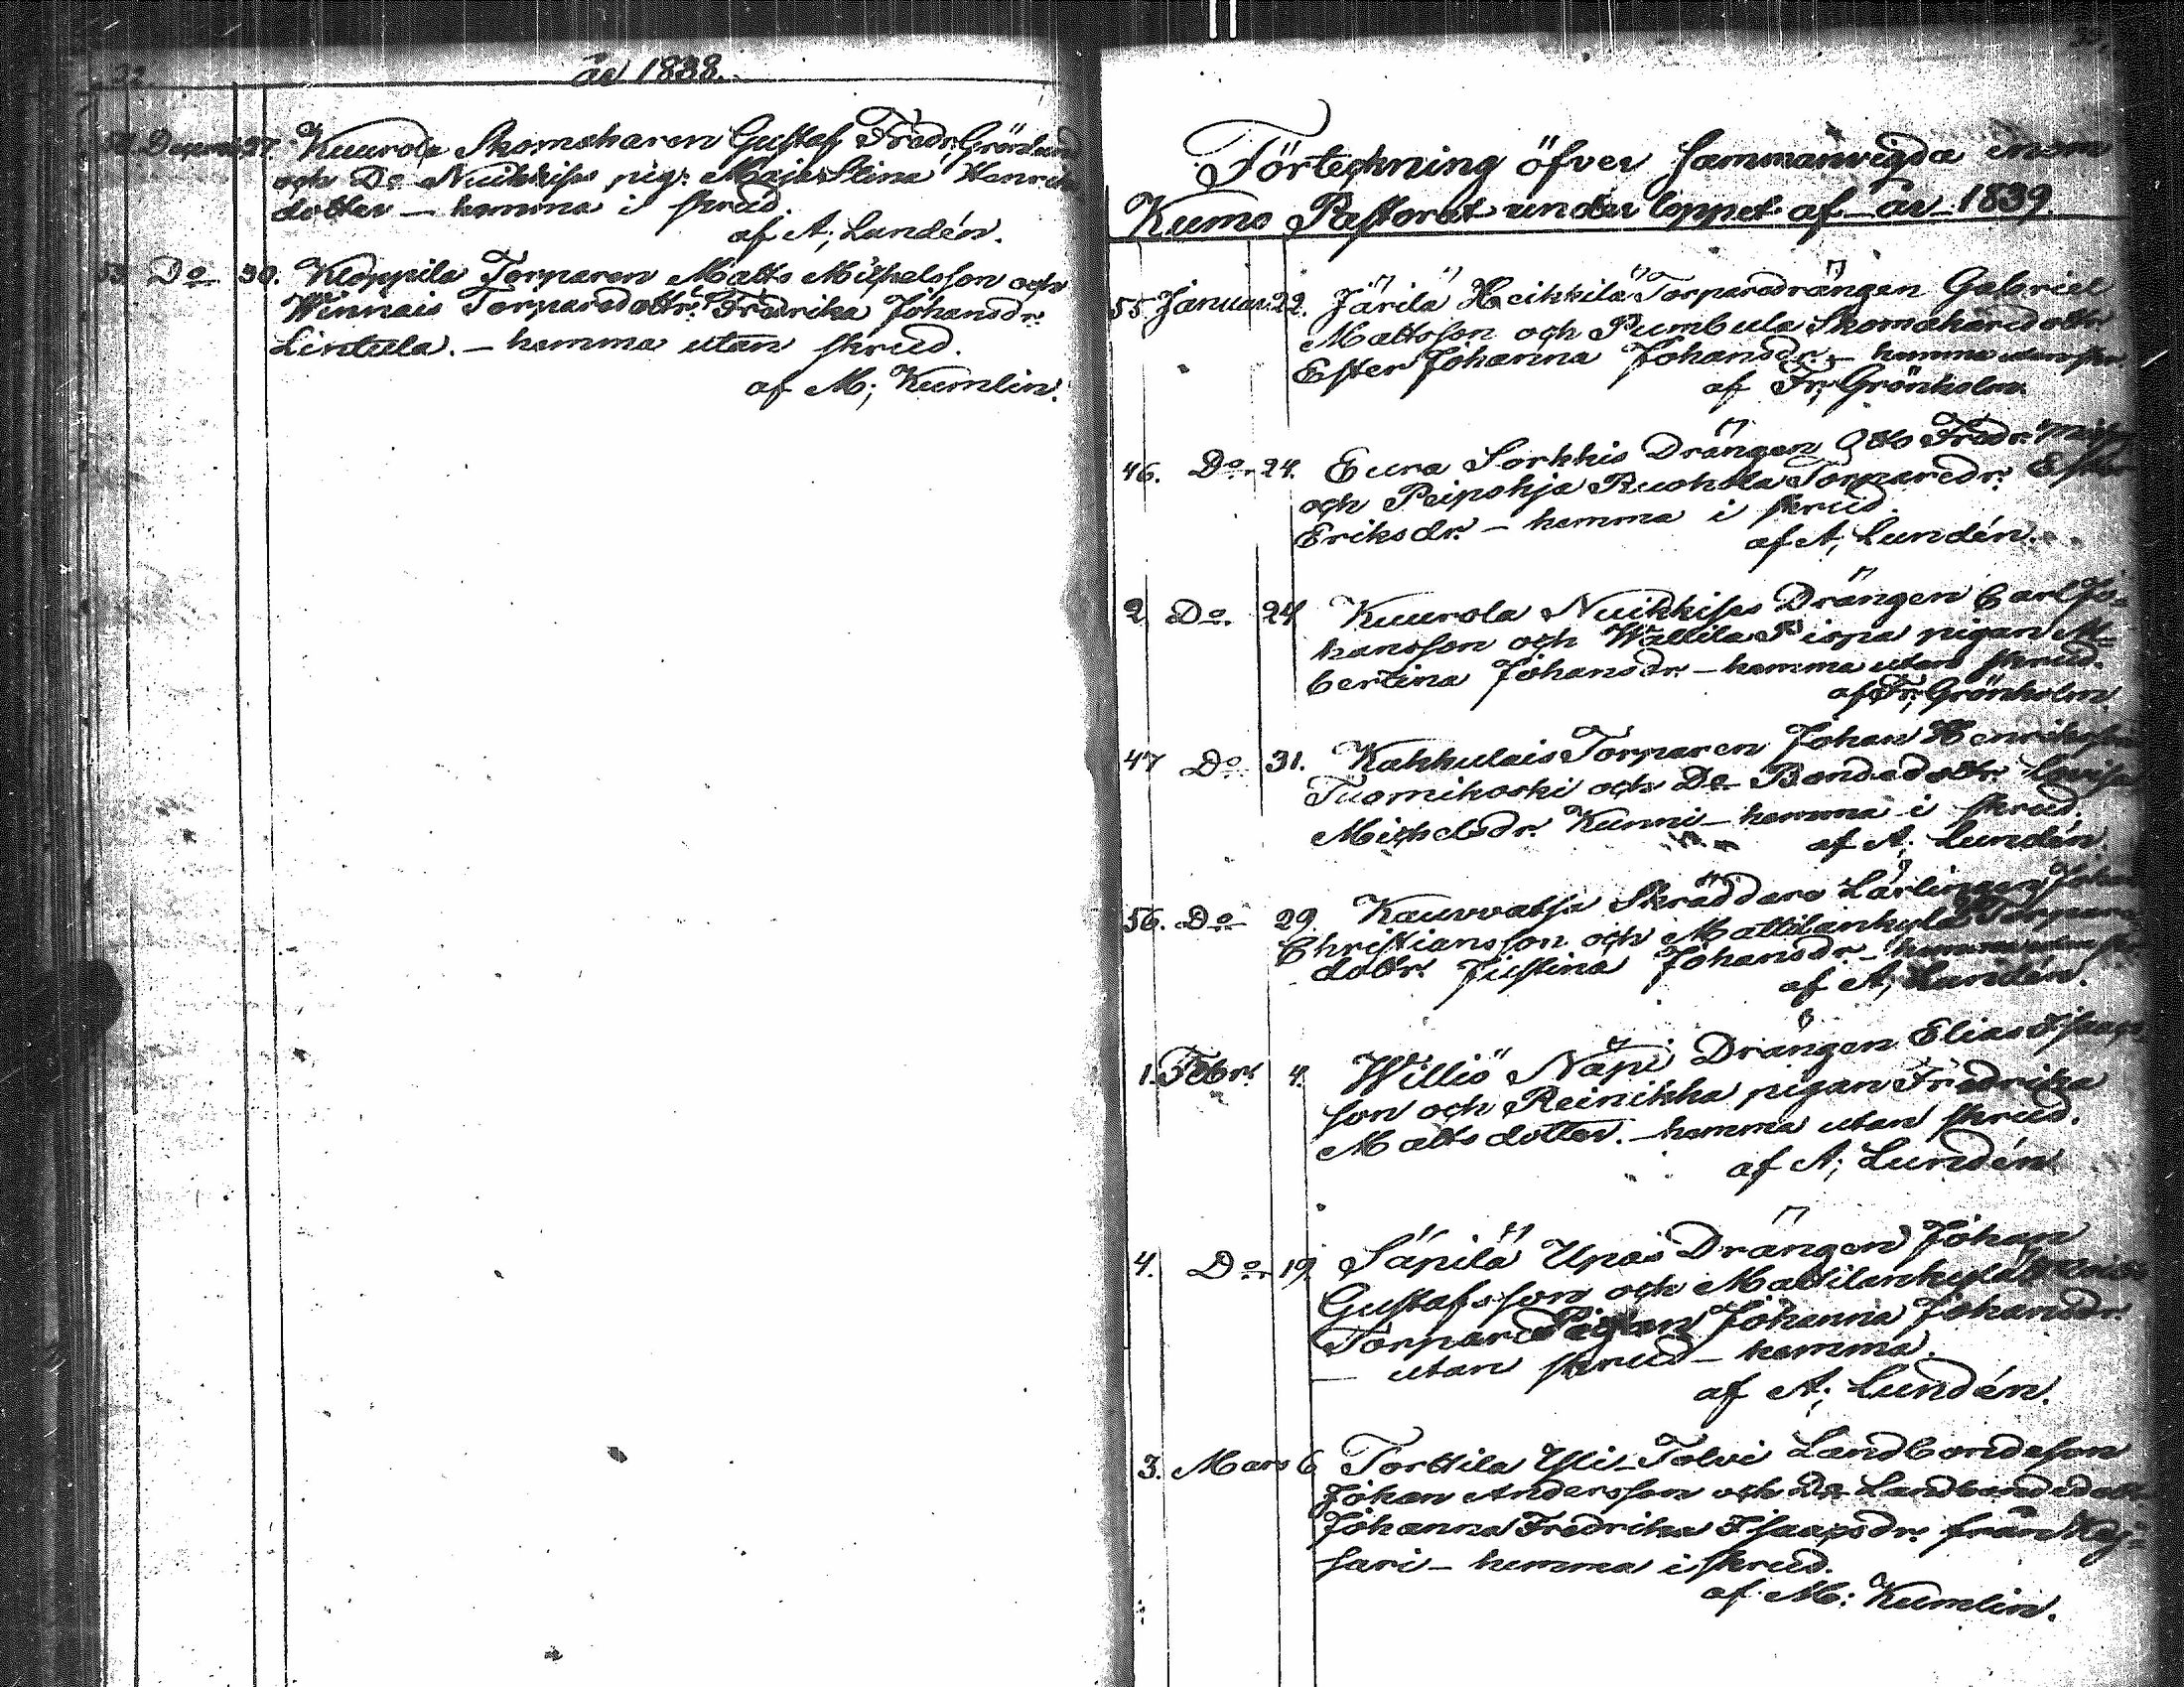 32
år 1838.
Decemb 27. Kuurola Skomakaren Gustaf Fredr. Grönlund
och Do Nuikkiss pig. Maja Stina Henriks
dotter — hemma i skrud.
af A; Lundén.
53 Do 30. Kloppila Torparen Matts Michelsson och
Winnais Torparedottr. Fredrika Johansdr.
Lintula. — hemma utan skrud.
af M; Kumlin.
Förteckning öfver sammanvigda inom
Kumo Pastorat under loppet af år 1839
55. Januar. 22. Järilä Heikkilä Torparedrängen Gabriel
Mattsson och Pumbula Skomakaredottr.
Ester Johanna Johansdr. — hemma utan skr.
af Fr; Grönholm.
46. Do 24. Eura Sorkkis Drängen Otto Fredr.
och Peipohja Ruohola Torparedr. Ester
Eriksdr. — hemma i skrud.
af A; Lundén.
2 Do 24 Kuurola Nuikkiss Drängen Carl Jo-
hansson och Wallila Pispa pigan Al-
bertina Johansdr. — hemma utan skrud.
af Fr; Grönholm.
47 Do 31. Kakkulais Torparen Johan Henriksson
Tuomikoski och Do Bondedottr. Lovisa
Michelsdr. Kunni — hemma i skrud.
af A; Lundén.
56. Do 29. Kauvatsa Skräddare Lärlingen Johan
Christiansson och Mattilankylä Torpare
dottr. Justina Johansdr. — hemma utan skr.
af A; Lundén.
1. Febr. 4. Williö Näpi Drängen Elias Isaacs
son och Reinikka pigan Fredrika
Matts dotter. — hemma utan skrud.
af A; Lundén
4. Do 19. Säpilä Upoi Drängen Johan
Gustafsson och Mattilankylä
Torpare Pigan Johanna Johansdr.
— utan skrud — hemma.
af A; Lundén.
3. Mars 6 Torttila Yli-Tolvi Landbondeson
Johan Andersson och Do Landbondedott.
Johanna Fredrika Isaacsdr. från Haj-
sari — hemma i skrud.
af M: Kumlin.